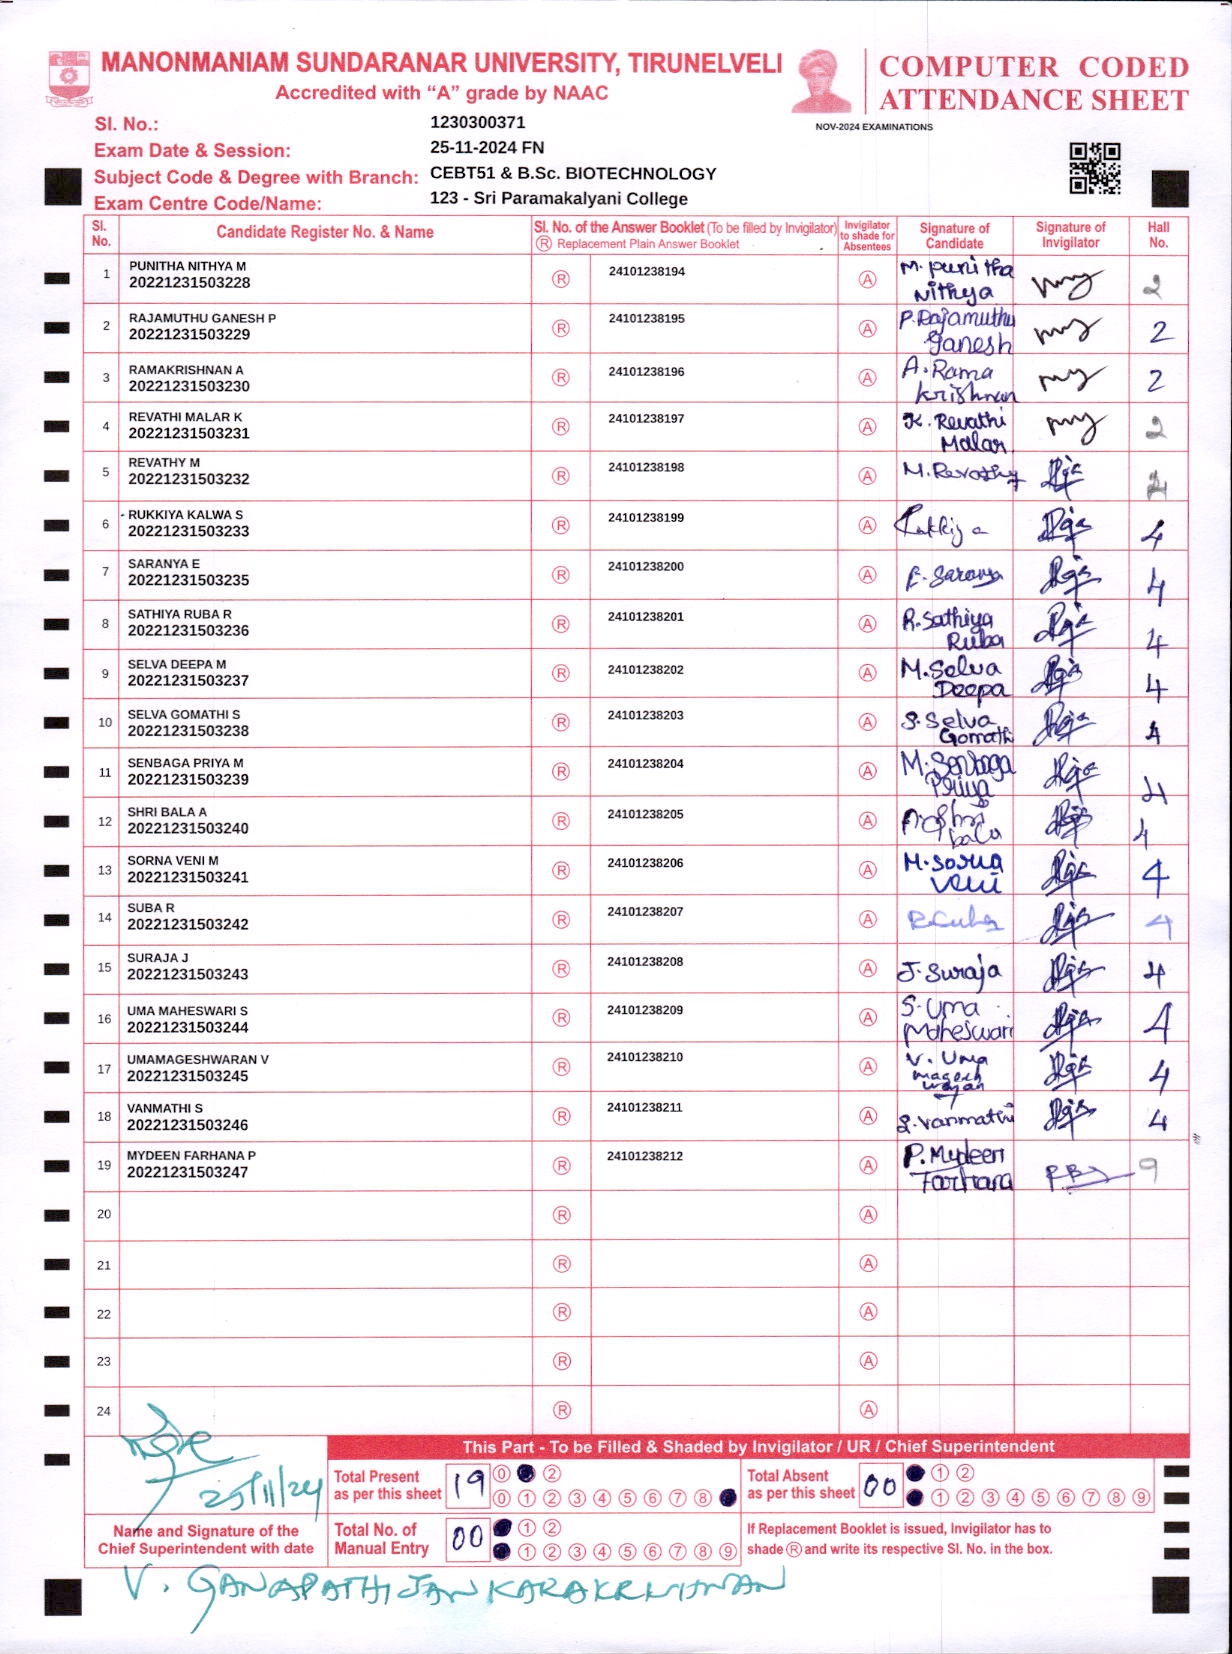 MANONMANIAM SUNDARANAR UNIVERSITY, TIRUNELVELI
Accredited with “A” grade by NAAC
COMPUTER CODED
ATTENDANCE SHEET
NOV-2024 EXAMINATIONS
Sl. No.: 1230300371
Exam Date & Session: 25-11-2024 FN
Subject Code & Degree with Branch: CEBT51 & B.Sc. BIOTECHNOLOGY
Exam Centre Code/Name: 123 - Sri Paramakalyani College
Sl. No. Candidate Register No. & Name Sl. No. of the Answer Booklet (To be filled by Invigilator) Ⓡ Replacement Plain Answer Booklet Invigilator to shade for Absentees Signature of Candidate Signature of Invigilator Hall No.
1 PUNITHA NITHYA M 20221231503228 Ⓡ 24101238194 Ⓐ M. Punitha Nithya 2
2 RAJAMUTHU GANESH P 20221231503229 Ⓡ 24101238195 Ⓐ P. Rajamuthu Ganesh 2
3 RAMAKRISHNAN A 20221231503230 Ⓡ 24101238196 Ⓐ A. Rama krishnan 2
4 REVATHI MALAR K 20221231503231 Ⓡ 24101238197 Ⓐ K. Revathi Malar. 2
5 REVATHY M 20221231503232 Ⓡ 24101238198 Ⓐ M. Revathy 2
6 RUKKIYA KALWA S 20221231503233 Ⓡ 24101238199 Ⓐ 4
7 SARANYA E 20221231503235 Ⓡ 24101238200 Ⓐ E. Saranya 4
8 SATHIYA RUBA R 20221231503236 Ⓡ 24101238201 Ⓐ R. Sathiya Ruba 4
9 SELVA DEEPA M 20221231503237 Ⓡ 24101238202 Ⓐ M. Selva Deepa 4
10 SELVA GOMATHI S 20221231503238 Ⓡ 24101238203 Ⓐ S. Selva Gomathi 4
11 SENBAGA PRIYA M 20221231503239 Ⓡ 24101238204 Ⓐ M. Senbaga Priya 4
12 SHRI BALA A 20221231503240 Ⓡ 24101238205 Ⓐ A. Shri bala 4
13 SORNA VENI M 20221231503241 Ⓡ 24101238206 Ⓐ M. Sorna Veni 4
14 SUBA R 20221231503242 Ⓡ 24101238207 Ⓐ R. Suba 4
15 SURAJA J 20221231503243 Ⓡ 24101238208 Ⓐ J. Suraja 4
16 UMA MAHESWARI S 20221231503244 Ⓡ 24101238209 Ⓐ S. Uma Maheswari 4
17 UMAMAGESHWARAN V 20221231503245 Ⓡ 24101238210 Ⓐ V. Uma 4
18 VANMATHI S 20221231503246 Ⓡ 24101238211 Ⓐ S. Vanmathi 4
19 MYDEEN FARHANA P 20221231503247 Ⓡ 24101238212 Ⓐ P. Mydeen Farhana 9
20 Ⓡ Ⓐ
21 Ⓡ Ⓐ
22 Ⓡ Ⓐ
23 Ⓡ Ⓐ
24 Ⓡ Ⓐ
25/11/24
This Part - To be Filled & Shaded by Invigilator / UR / Chief Superintendent
Total Present as per this sheet 19 0 2
0 1 2 3 4 5 6 7 8
Total Absent as per this sheet 00 1 2
1 2 3 4 5 6 7 8 9
Name and Signature of the
Chief Superintendent with date
Total No. of Manual Entry 00 1 2
1 2 3 4 5 6 7 8 9
If Replacement Booklet is issued, Invigilator has to
shade Ⓡ and write its respective Sl. No. in the box.
V. GANAPATHI